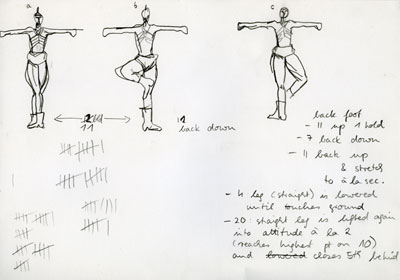 a
b
c
11
11
back down
back foot
- 11 up 1 hold
- 7 back down
- 11 back up
& stretch
to à la sec.
- 4 leg (straight) is lowered
until touches ground
- 20: straight leg is lifted again
into attitude à la 2
(reaches highest pt on 10)
and lowered closes 5th behind